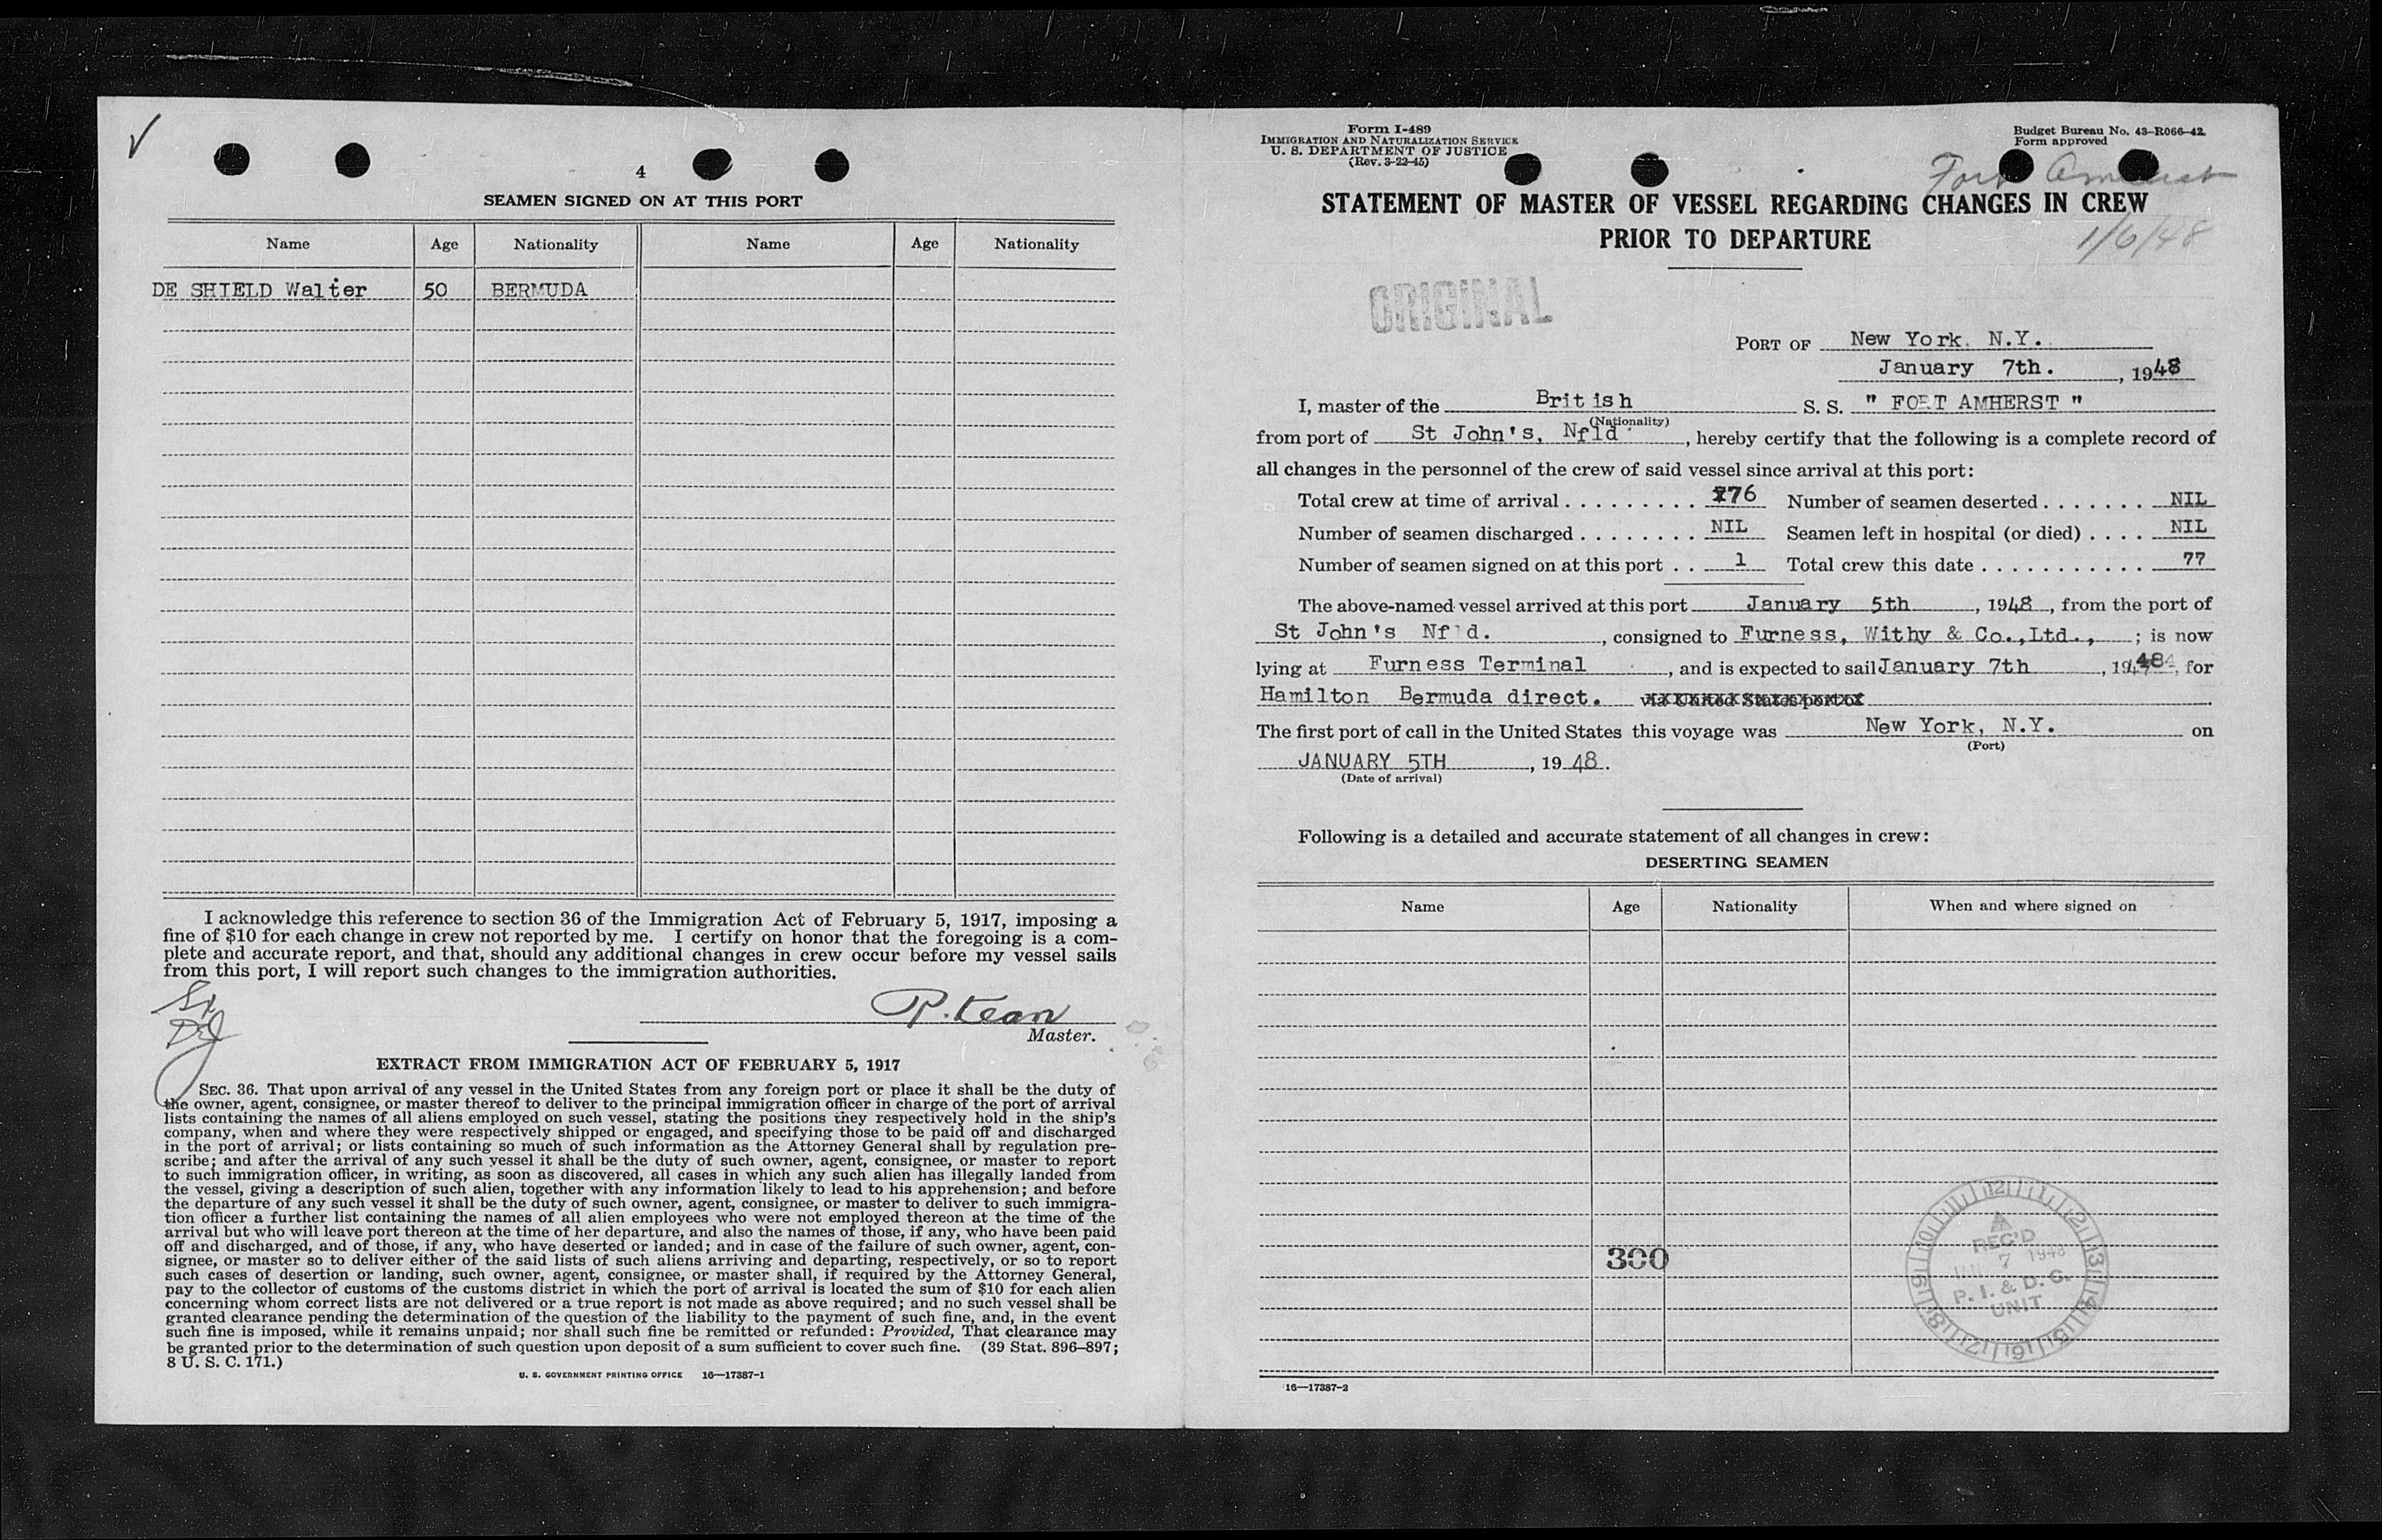 4
SEAMEN SIGNED ON AT THIS PORT
Name Age Nationality Name Age Nationality
DE SHIELD Walter 50 BERMUDA
I acknowledge this reference to section 36 of the Immigration Act of February 5, 1917, imposing a
fine of $10 for each change in crew not reported by me. I certify on honor that the foregoing is a com-
plete and accurate report, and that, should any additional changes in crew occur before my vessel sails
from this port, I will report such changes to the immigration authorities.
P. Kean
Master.
EXTRACT FROM IMMIGRATION ACT OF FEBRUARY 5, 1917
SEC. 36. That upon arrival of any vessel in the United States from any foreign port or place it shall be the duty of
the owner, agent, consignee, or master thereof to deliver to the principal immigration officer in charge of the port of arrival
lists containing the names of all aliens employed on such vessel, stating the positions they respectively hold in the ship's
company, when and where they were respectively shipped or engaged, and specifying those to be paid off and discharged
in the port of arrival; or lists containing so much of such information as the Attorney General shall by regulation pre-
scribe; and after the arrival of any such vessel it shall be the duty of such owner, agent, consignee, or master to report
to such immigration officer, in writing, as soon as discovered, all cases in which any such alien has illegally landed from
the vessel, giving a description of such alien, together with any information likely to lead to his apprehension; and before
the departure of any such vessel it shall be the duty of such owner, agent, consignee, or master to deliver to such immigra-
tion officer a further list containing the names of all alien employees who were not employed thereon at the time of the
arrival but who will leave port thereon at the time of her departure, and also the names of those, if any, who have been paid
off and discharged, and of those, if any, who have deserted or landed; and in case of the failure of such owner, agent, con-
signee, or master so to deliver either of the said lists of such aliens arriving and departing, respectively, or so to report
such cases of desertion or landing, such owner, agent, consignee, or master shall, if required by the Attorney General,
pay to the collector of customs of the customs district in which the port of arrival is located the sum of $10 for each alien
concerning whom correct lists are not delivered or a true report is not made as above required; and no such vessel shall be
granted clearance pending the determination of the question of the liability to the payment of such fine, and, in the event
such fine is imposed, while it remains unpaid; nor shall such fine be remitted or refunded: Provided, That clearance may
be granted prior to the determination of such question upon deposit of a sum sufficient to cover such fine. (39 Stat. 896–897;
8 U. S. C. 171.)
U. S. GOVERNMENT PRINTING OFFICE 16—17387-1
Form I-489
IMMIGRATION AND NATURALIZATION SERVICE
U. S. DEPARTMENT OF JUSTICE
(Rev. 3-22-45)
Budget Bureau No. 43-R066-42.
Form approved
Fort Amherst
STATEMENT OF MASTER OF VESSEL REGARDING CHANGES IN CREW
PRIOR TO DEPARTURE
1/6/48
ORIGINAL
PORT OF New York. N.Y.
January 7th. , 1948
I, master of the British S. S. " FORT AMHERST "
(Nationality)
from port of St John's, Nfld. , hereby certify that the following is a complete record of
all changes in the personnel of the crew of said vessel since arrival at this port:
Total crew at time of arrival . . . . . . . . . 76 Number of seamen deserted . . . . . . . NIL
Number of seamen discharged . . . . . . . . NIL Seamen left in hospital (or died) . . . . NIL
Number of seamen signed on at this port . . 1 Total crew this date . . . . . . . . . . . . 77
The above-named vessel arrived at this port January 5th , 1948 , from the port of
St John's Nfld. , consigned to Furness, Withy & Co.,Ltd., ; is now
lying at Furness Terminal , and is expected to sail January 7th , 1948 , for
Hamilton Bermuda direct. via United States port of
The first port of call in the United States this voyage was New York, N.Y. on
(Port)
JANUARY 5TH , 19 48.
(Date of arrival)
Following is a detailed and accurate statement of all changes in crew:
DESERTING SEAMEN
Name Age Nationality When and where signed on
300
REC'D
7 1948
P. I. & D. C.
UNIT
16—17387-2